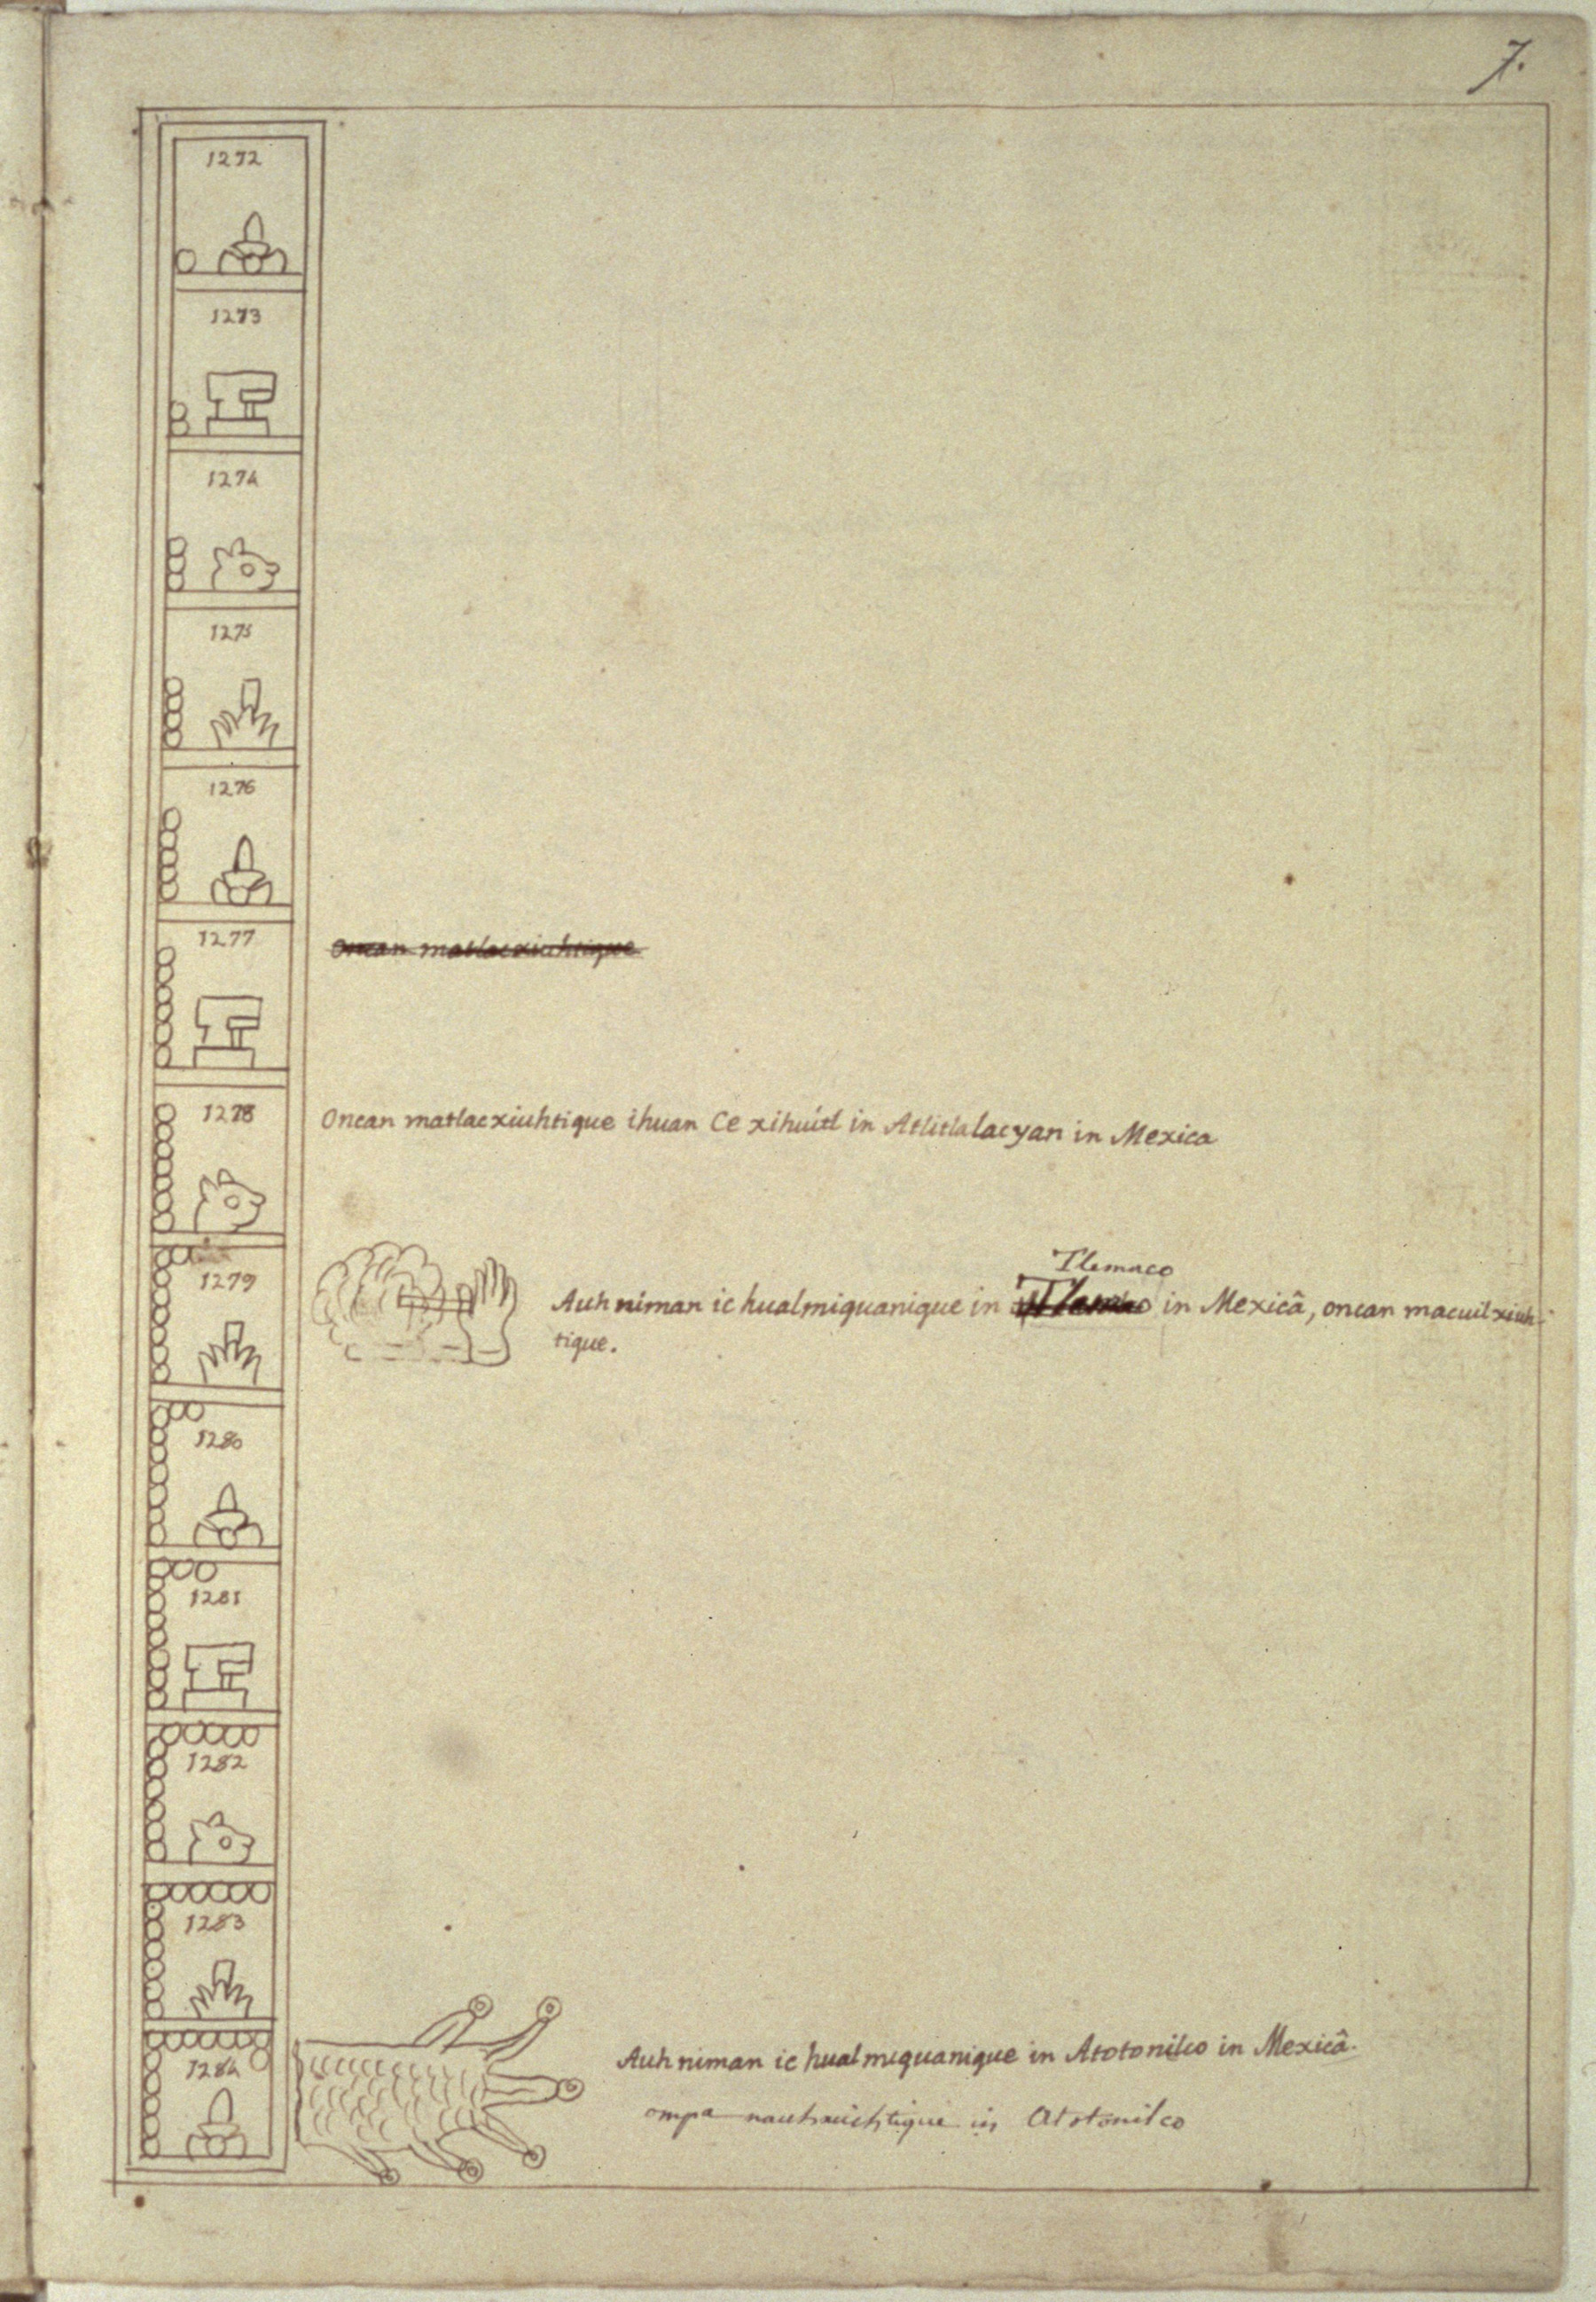 7.
1272
1273
1274
1275
1276
1277
Oncan matlacxiuhtique
1278
Oncan matlacxiuhtique ihuan Ce xihuitl in Atlitlalacyan in Mexica
1279
Tlemaco
Auh niman ic hualmiquanique in in Mexicâ, oncan macuilxiuh-
tique.
1280
1281
1282
1283
1284
Auh niman ic hualmiquanique in Atotonilco in Mexicâ.
ompa nauhxiuhtique in Atotonilco